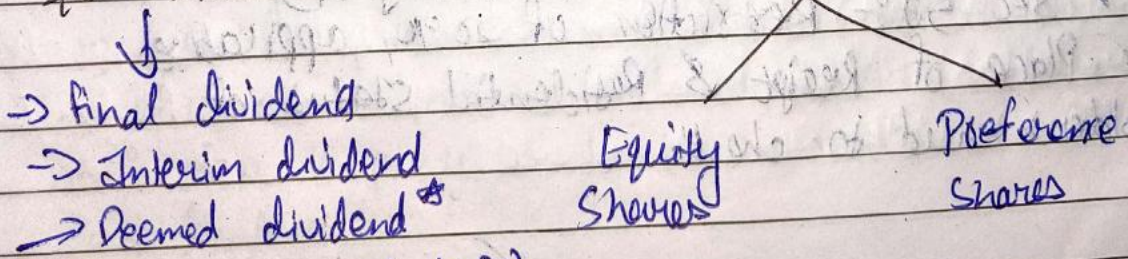 -> final dividend
-> Interim dividend
-> Deemed dividend *
Equity
Shares
Preference
Shares